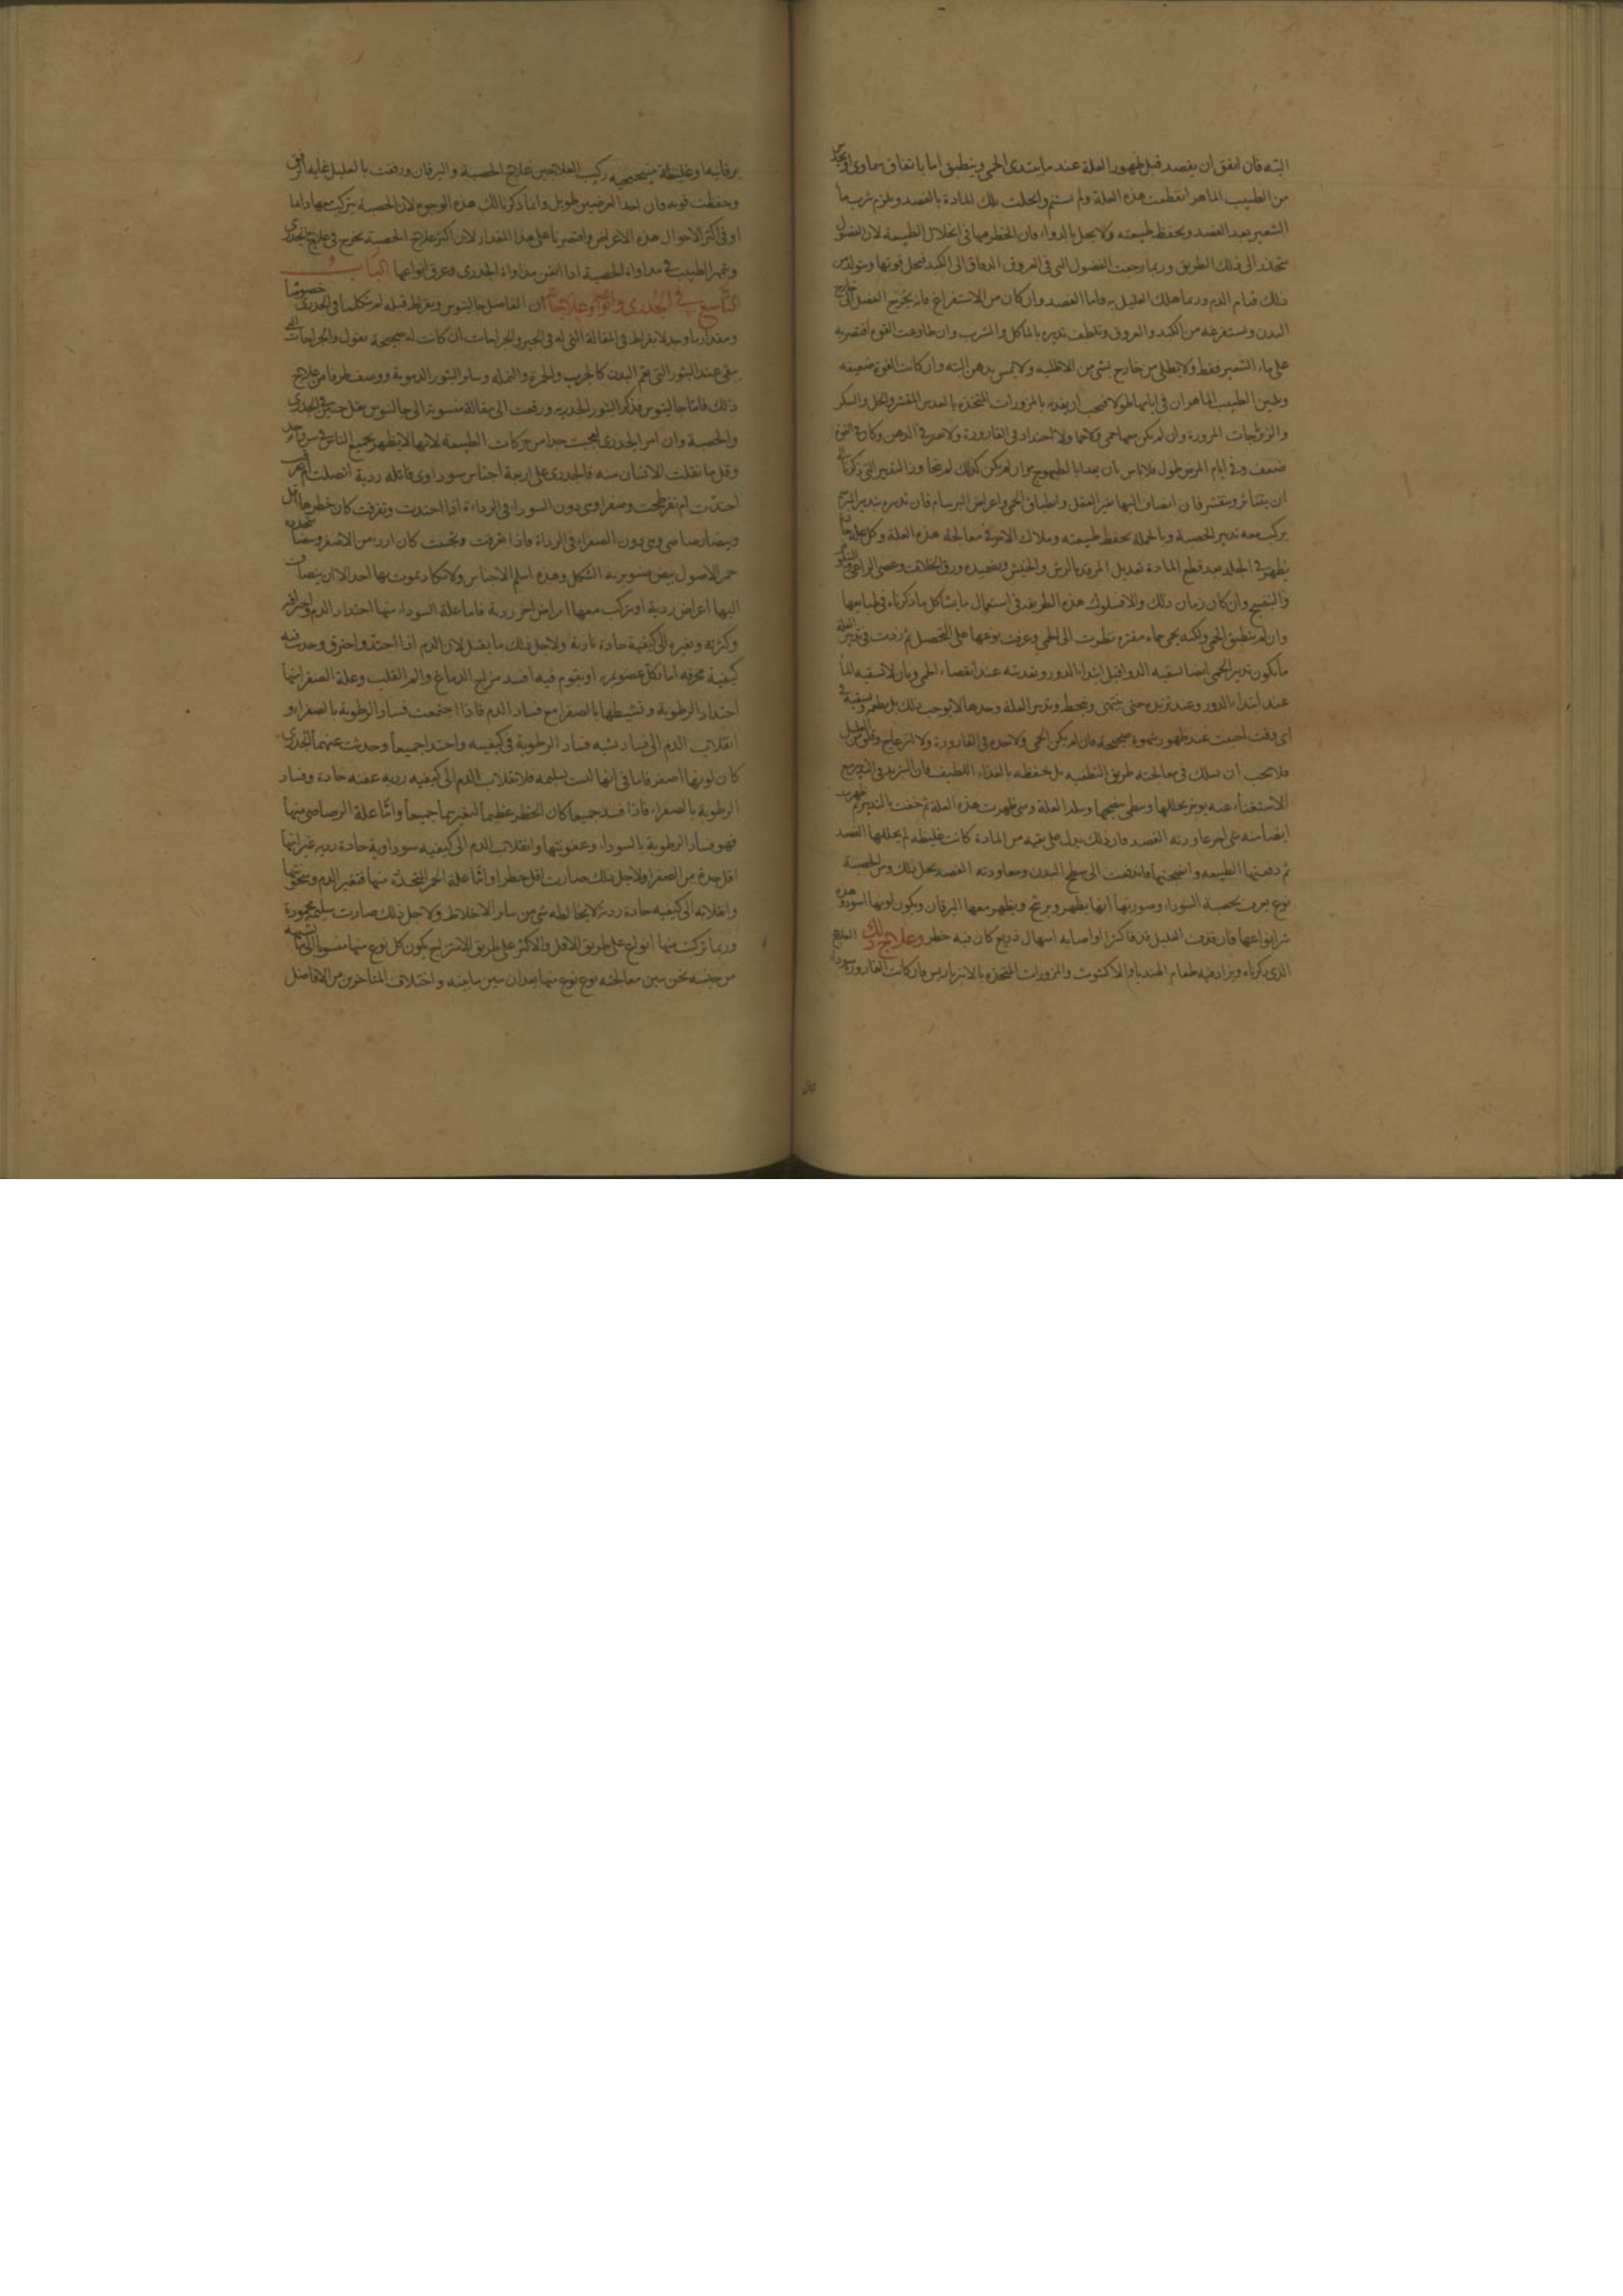 البته فان اتفق ان يفصد قبل ظهور العلة عند ما يبتدى الحمى وينطبق اما باتفاق سماوى او بحدس
من الطبيب الماهر انقطعت هذه العلة ولم تستتم وانحلت تلك المادة بالفصد ويلزم شرب ماء
الشعير بعد الفصد ويحفظ طبيعته ولا يحل بالدواء فان الخطر فيها فى انحلال الطبيعة لان الفضول
تنحدر الى ذلك الطريق وربما رجعت الفضول التى فى العروق الدقاق الى الكبد فيحل قوتها ويتولد من
ذلك قيام الدم وربما هلك العليل به فاما الفصد وان كان من الاستفراغ فانه يخرج الفضل الى خارج
البدن ويستفرغه من الكبد والعروق وتلطف تدبيره بالماكل والمشرب وان طاوعت القوة اقتصر به
على ماء الشعير فقط ولا يطلى من خارج بشى من الاطلية ولا يمس بدهن البته وان كانت القوة ضعيفة
وظن الطبيب الماهر ان فى ايامها طولا فيجب ان يغذيه بالمزورات المتخذة بالعدس المقشر والخل والسكر
والزيرباجات المزورة وان لم يكن معها حمى ولا احتداد فى القارورة ولا تغير فى الذهن وكان فى القوة
ضعف وفى ايام المرض طول فلا باس بان يغذا بالطيهوج وان لم يكن كذلك لم يتجاوز التدبير التى ذكرنا الى
ان يتناثر ويتقشر فان انضاف اليها تغير العقل وانطباق الحمى واعراض البرسام فان تدبيره بتدبير البرسام
يركب معه تدبير الحصبة وبالجملة يحفظ طبيعته وملاك الامر فى معالجة هذه العلة وكل علة
يظهر فى الجلد بعد قطع المادة تعديل المرقد بالرش والخيش وتنضيده ورق الخلاف وعصى الراعى
والبنفسج وان كان زمان ذلك والا فسلوك هذه الطريقه فى استعمال ما يشاكل ما ذكرناه فى طبايعها
وان لم ينطبق الحمى ولكنه يحمى حماء مفترة نظرت الى الحمى وعرفت نوعها على التحصيل ثم زدت فى تدبير العلة
ما يكون تدبير الحمى ايضا لسقيه الدواء قبل ابتداء الدور وتغذيته عند انقضاء الحمى وبان لا تسقيه الماء
عند ابتداء الدور وعند تزيده حتى ينتهى وينحط وتدبير العلة وحدها لا يوجب ذلك بل تطعمه وتسقيه فى
اى وقت احببت عند ظهور شهوة صحيحة فان لم يكن الحمى ولا حدة فى القارورة ولا انزعاج وقلق من العليل
فلا يجب ان تسلك فى معالجته طريق التطفيه بل تحفظه بالغذاء اللطيف فان التزيد فى التبريد مع
الاستغناء عنه يوخر تحللها ويبطى نضجها وبلد العلة ومتى ظهرت هذه العلة ثم خفت بالتدبير ثم ظهرت
ايضا منه شى اخر عاودته الفصد فان ذلك يدل على بقيه من المادة كانت غليظة لم يحللها الفصد
ثم دفعتها الطبيعه وانضجتها فاندفعت الى سطح البدن ومعاودته الفصد يحل ذلك ومن الحصبة
نوع يعرف بحصبة السوداء وصورتها انها يظهر ويرتفع ويظهر معها اليرقان ويكون لونها اسود وهذه
شر انواعها فان قذف العليل قذفا كثيرا او اصابه اسهال ذريع كان فيه خطر وعلاج ذلك العلاج
الذى ذكرناه ويزاد فيه طعام الهندبا والاكشوث والمزورات المتخذة بالانبرباريس فان كانت القارورة سوداء
يرقانيه او غليظة تركيب العلاجين علاج الحصبة واليرقان ورفقت بالعليل غاية الرفق
وحفظت قوته فان احد المرضين طويل وانما ذكرنا لك هذه الوجوه لان الحصبة يتركب معها دايما
او فى اكثر الاحوال هذه الاعراض واقتصرنا على هذا المقدار لان اكثر علاج الحصبة يخرج فى علاج الجدرى
ومهر الطبيب فى مداواة الحصبة اذا اتقن مداواة الجدرى وعرف انواعها الباب
التاسع فى الجدرى وانواعه وعلاجها ان الفاضل جالينوس وبقراط قبله لم يتكلما فى الجدرى خصوصا
ومقدار ما وجد لابقراط فى المقالة التى له فى الجبر والجراحات ان كانت له صحيحة يقول والجراحات التى
يبقى عند البثور التى يعم البدن كالجرب والحمرة والنملة وساير البثور الدموية ووصف طرفا من علاج
ذلك فاما جالينوس فذكر البثور الجدريه ورفعت الى مقالة منسوبة الى جالينوس نقل حنين فى الجدرى
والحصبة وان امر الجدرى لعجيب جدا من حركات الطبيعة لانها لا يظهر بجميع الناس فى سن واحد
وقل ما نفلت الانسان منه فالجدرى على اربعة اجناس سوداوى قاتله ردية اتصلت ام تفرقت
احتدت ام تفرطحت وصفراوى دون السوداء فى الرداءة اذا احتدت وتفرقت كان خطرها اقل
وبيضا رصاصى وهى دون الصفراء فى الرداة فاذا تفرقت وتحببت كان اردا من الاصفر وبيضا متحددة
حمر الاصول بيض صنوبرية الشكل وهذه اسلم الاجناس ولا يكاد يموت بها احد الا ان ينضاف
اليها اعراض ردية او يتركب معها امراض اخر ردية فاما علة السوداء منها احتداد الدم واحتراقه
وكثرته وتغيره الى كيفية حادة نارية ولاجل ذلك ما يقتل لان الدم اذا احتد واحترق وحدث فيه
كيفية محرقة اما نكل عضو يمر به او يقوم فيه افسد مزاج الدماغ والم القلب وعلة الصفراء منها
احتداد الرطوبة وتشيطها بالصفرا مع فساد الدم فاذا اجتمعت فساد الرطوبة بالصفراء و
انقلاب الدم الى فساد يشبه فساد الرطوبة فى كيفيته واحتدا جميعا وحدث عنهما الجدرى
كان لونها اصفر فاما فى انها ليست بسليمه فلانقلاب الدم الى كيفيه رديه عفنه حادة وفساد
الرطوبة بالصفراء فاذا فسد جميعا كان الخطر عظيما لتغيرهما جميعا واما علة الرصاصى منها
فهو فساد الرطوبة بالسوداء وعفونتها وانقلاب الدم الى كيفيه سوداوية حادة رديه غير انها
اقل حدة من الصفرا ولاجل ذلك صارت اقل خطرا واما علة الحمر المتحددة منها فتغير الدم وتحرقها
وانقلابه الى كيفيه حادة ردية لا يخالطه شى من ساير الاخلاط ولاجل ذلك صارت سليمة محمودة
وربما تركبت منها انواع على طريق الاقل والاكثر على طريق الامتزاج يكون كل نوع منها منسوبا الى ما يشبهه
من جنسه نحن نبين معالجته نوع نوع منها بعد ان نبين ما بينه واختلاف المتاخرين من الافاضل